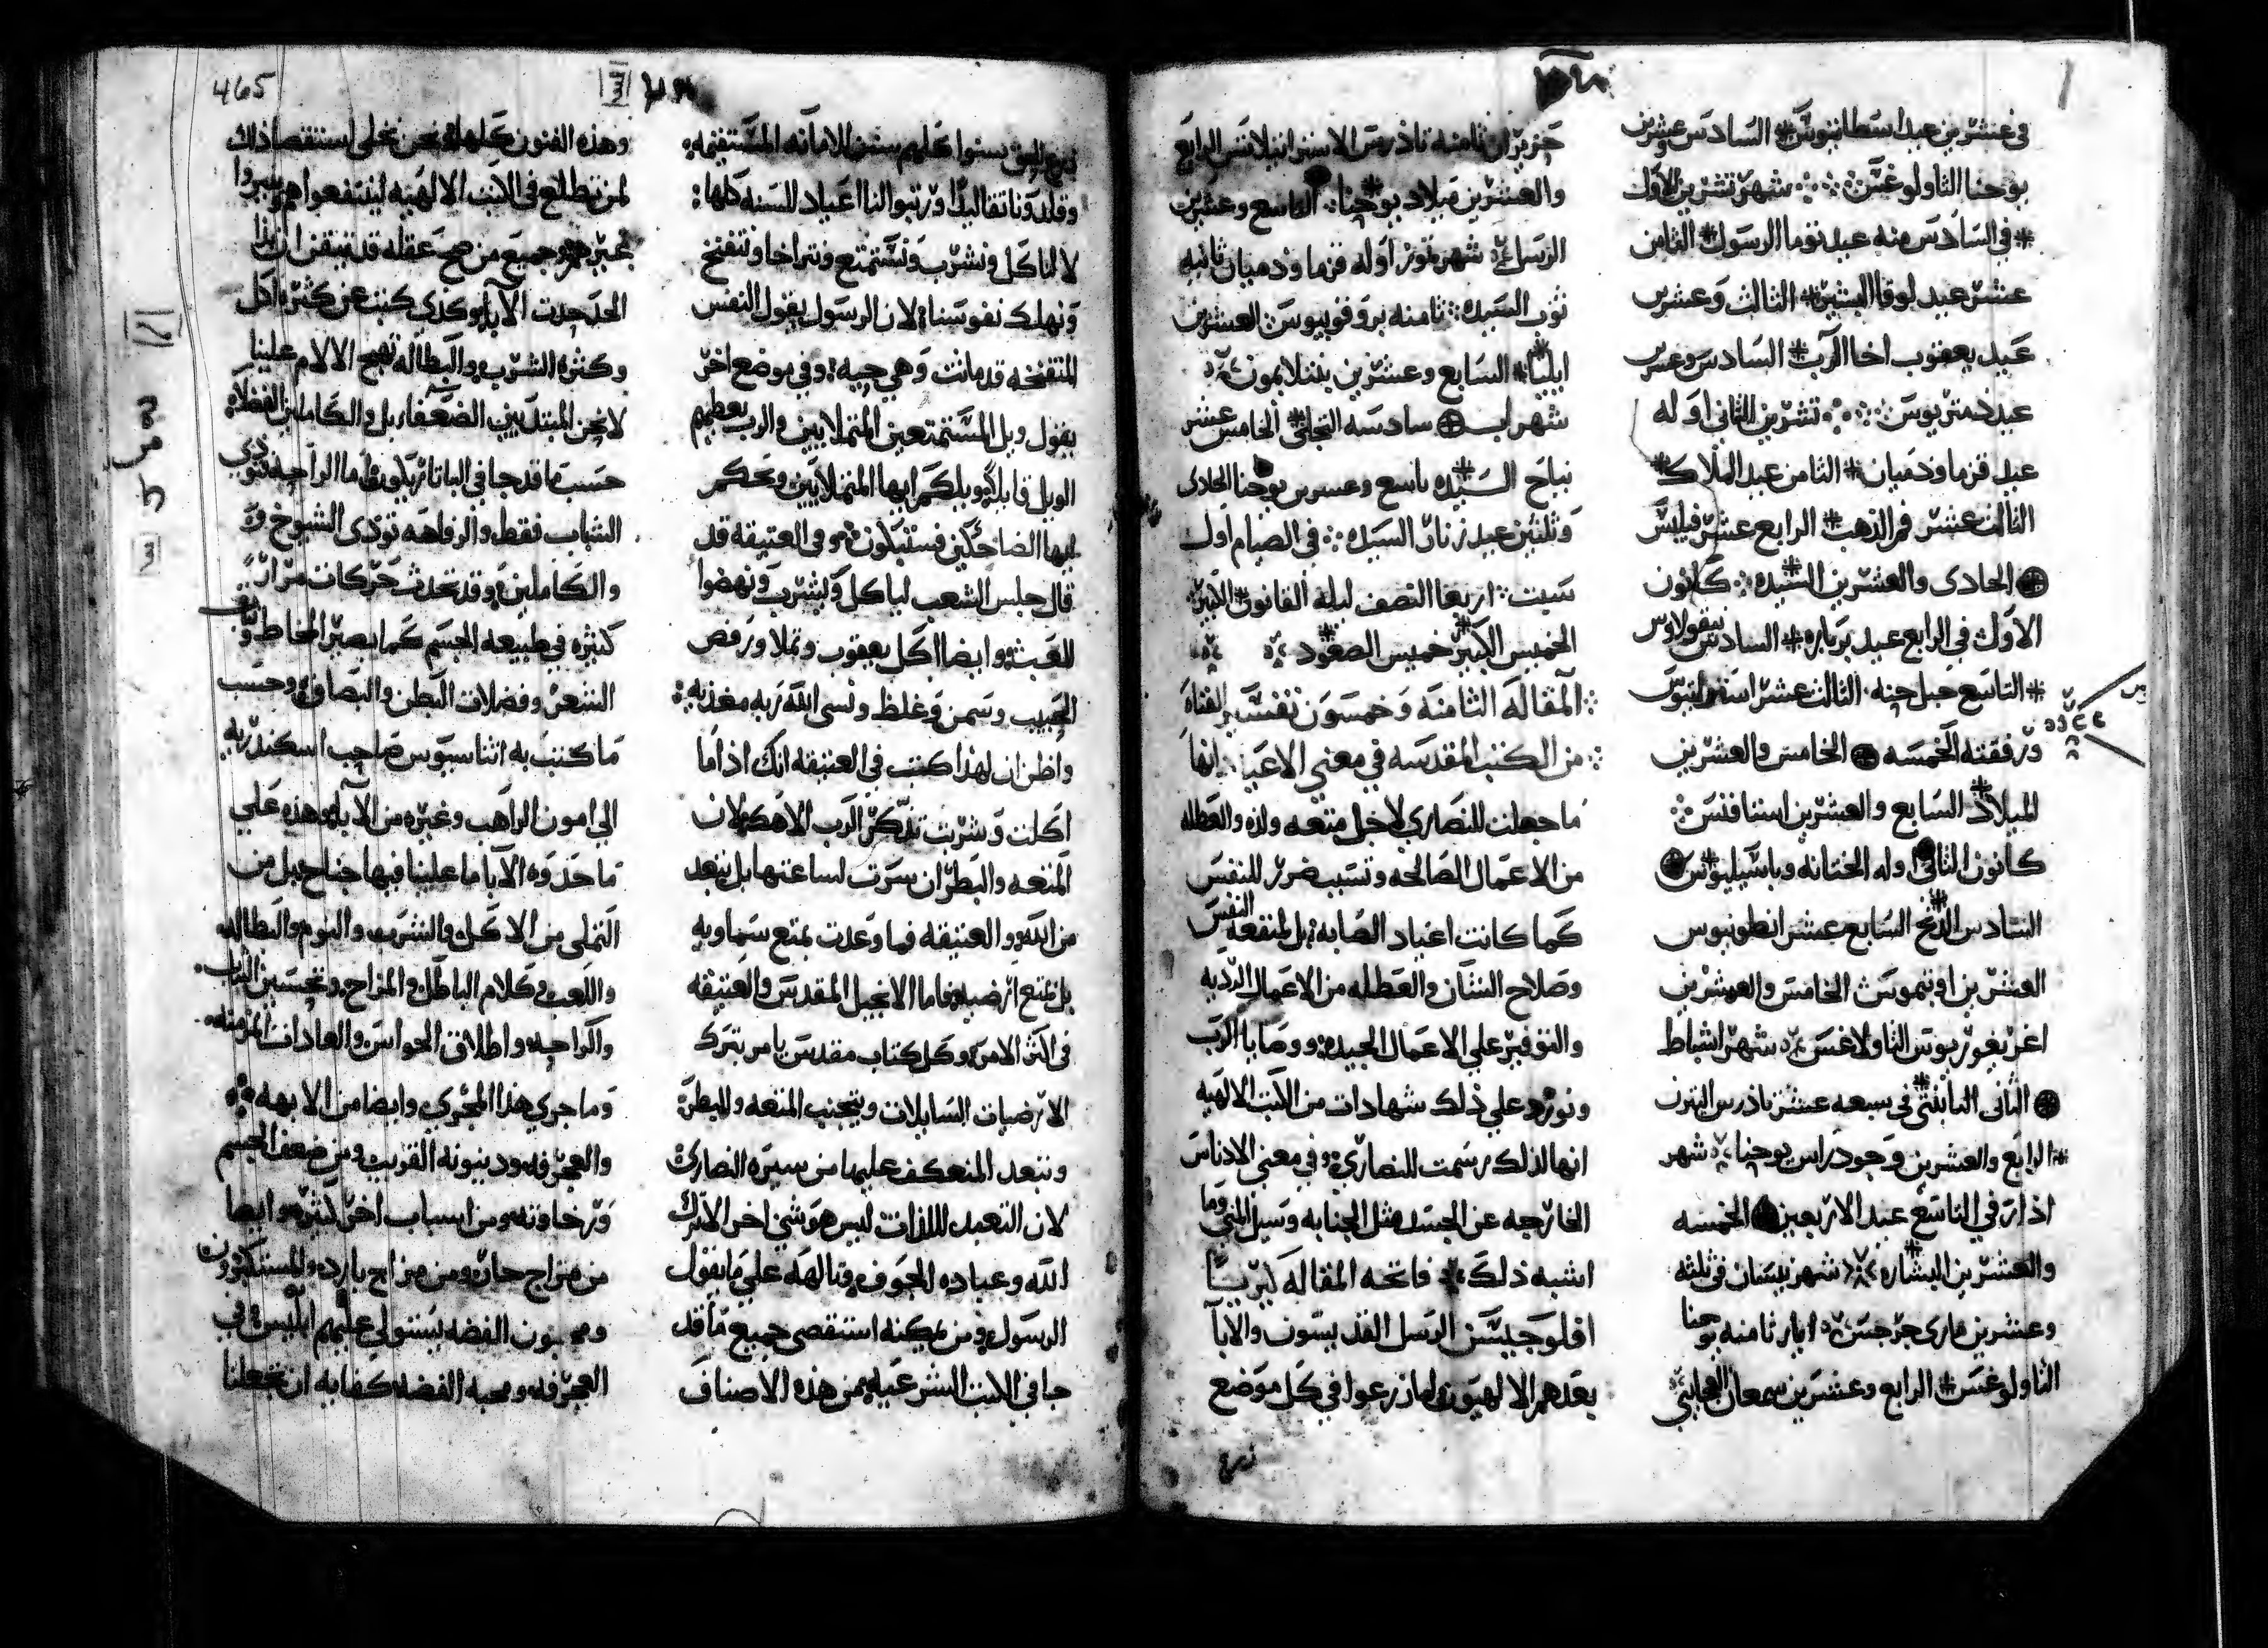 في عشرين عيد اسطانيوس السادس وعشرين
يوحنا الثاولوغس شهر تشرين الاول
في السادس منه عيد توما الرسول الثامن
عشر عيد لوقا البشير الثالث وعشرين
عيد يعقوب اخا الرب السادس وعشرين
عيد دمتريوس تشرين الثاني اوله
عيد قزما ودميان الثامن عيد الملاك
الثالث عشر فم الذهب الرابع عشر فيلبس
الحادي والعشرين السيده كانون
الاول في الرابع عيد بربارة السادس نيقولاوس
التاسع حبل حنه الثالث عشر
ورفقته الخمسه الخامس والعشرين
الميلاد السابع والعشرين استافنس
كانون الثاني اوله الختانه وباسيليوس
السادس الدنح السابع عشر انطونيوس
العشرين اوتيموس الخامس والعشرين
اغريغوريوس الثاولاغس شهر اشباط
الثاني في سبعه عشر تاذرس
الرابع والعشرين وجود راس يوحنا شهر
اذار في التاسع عيد الاربعين الخمسه
والعشرين البشاره شهر نيسان في ثلثه
وعشرين ماري جرجس ايار ثامنه يوحنا
الثاولوغس الرابع وعشرين سمعان العجايبي
حزيران ثامنه تاذرس الرابع
والعشرين ميلاد يوحنا التاسع وعشرين
الرسل شهر تموز اوله قزما ودميان ثانيه
ثوب السيده ثامنه بروقوبيوس العشرين
ايليا السابع وعشرين بنتلايمون
شهر اب سادسه التجلي الخامس عشر
نياح السيده تاسع وعشرين يوحنا الحادي
وثلثين عيد زنار السيده في الصيام اول
سبت اربعا النصف ليلة القانون الكبير
الخميس الكبير خميس الصعود
المقاله الثامنه وخمسون تفسير
من الكتب المقدسه في معني الاعياد انها
ما جعلت للنصاري لاجل متعه ولذه والعطله
من الاعمال الصالحه وتسبب ضرر للنفس
كما كانت اعياد الصابه بل لمنفعه النفس
وصلاح الشان والعطله من الاعمال الرديه
والتوفير علي الاعمال الجيده ووصايا الرب
ونورد علي ذلك شهادات من الكتب الالهيه
انها لذلك رسمت للنصاري وفي معني الادناس
الخارجه عن الجسد مثل الجنابه وسيل المني وما
اشبه ذلك فاتحه المقاله كيريا
افلوجيسن الرسل القديسون والابآ
بعدهم الالهيون لما زرعوا في كل موضع
سنوا كلهم سنن الامانه المستقيمه
وقلدونا تقاليد ورتبوا لنا اعياد للسنه كلها
لا لناكل ونشرب ونستمتع ونتراخا وننتفخ
ونهلك نفوسنا لان الرسول يقول النفس
المنتفخه قد ماتت وهي حيه وفي موضع اخر
يقول ويل المستمتعين المتملايين والرب يعطيهم
الويل قايلا ويلكم ايها المتملايين وبحكم
ايها الضاحكين فستبكون وفي العتيقه قد
قال جلس الشعب لياكل وليشرب ونهضوا
للعبث وايضا اكل يعقوب وتملا ورفص
الحبيب وسمن وغلظ ونسي الله ربه مغذيه
واظن ان لهذا كتب في العتيقه انك اذا ما
اكلت وشربت تذكر الرب الاهك لان
المتعه والبطر ان سرت لساعتها بل تبعد
من الله والعتيقه فما وعدت بمتع سماويه
بل بمتع ارضيه فاما الانجيل المقدس والعتيقه
في اكثر الامر وكل كتاب مقدس يامر بترك
الارضيات السايلات ويتجنب المتعه والبطر
وتبعد المنعكف عليها من سيره النصاري
لان التعبد للذات ليس هو شي اخر الا ترك
الله وعباده الجوف وتالهه علي ما يقول
الرسول ومن يمكنه استقصي جميع ما قد
جا في الكتب الشرعيه من هذه الاصناف
وهذه الفنون كلها ونحن نخلي استقصا ذلك
لمن تطلع في الكتب الالهيه لينتفعوا هم ويبروا
غيرهم وجميع من صح عقله قد تيقن ان
حددت الابا وكذي كتب عن كثره اكل
وكثره الشرب والبطاله تهيج الالام علينا
لا نحن المبتديين الضعفاء بل والكاملين الفضلاء
حسب ما قد جا في الباتاريكون اما الراحه تودي
الشباب فقط والرفاهه تودي الشيوخ
والكاملين وقد تحدث حركات مرارا
كثيره في طبيعه الجسم كما يصير المخاط
الشعر وفضلات البطن والبصاق وحسب
ما كتب به اثناسيوس صاحب اسكندريه
الي امون الراهب وغيره من الابا وهذه علي
ما حددوه الابا ما علينا فيها جناح بل من
التملي من الاكل والشرب والنوم والبطاله
واللعب وكلام الباطل والمزاح وتحسين الثياب
والراحه واطلاق الحواس والعادات المزمنه
وما جري هذا المجري وايضا من الابهه
والعجرفه ودينونه القريب ومن ضعف الجسم
ورخاوته ومن اسباب اخر كثيره وايضا
من مزاج حار ومن مزاج بارد والمستكبرون
ومحبون الفضه يستولي عليهم ابليس في
العجرفه ومحبه الفضه كفايه ان تجعلنا
465